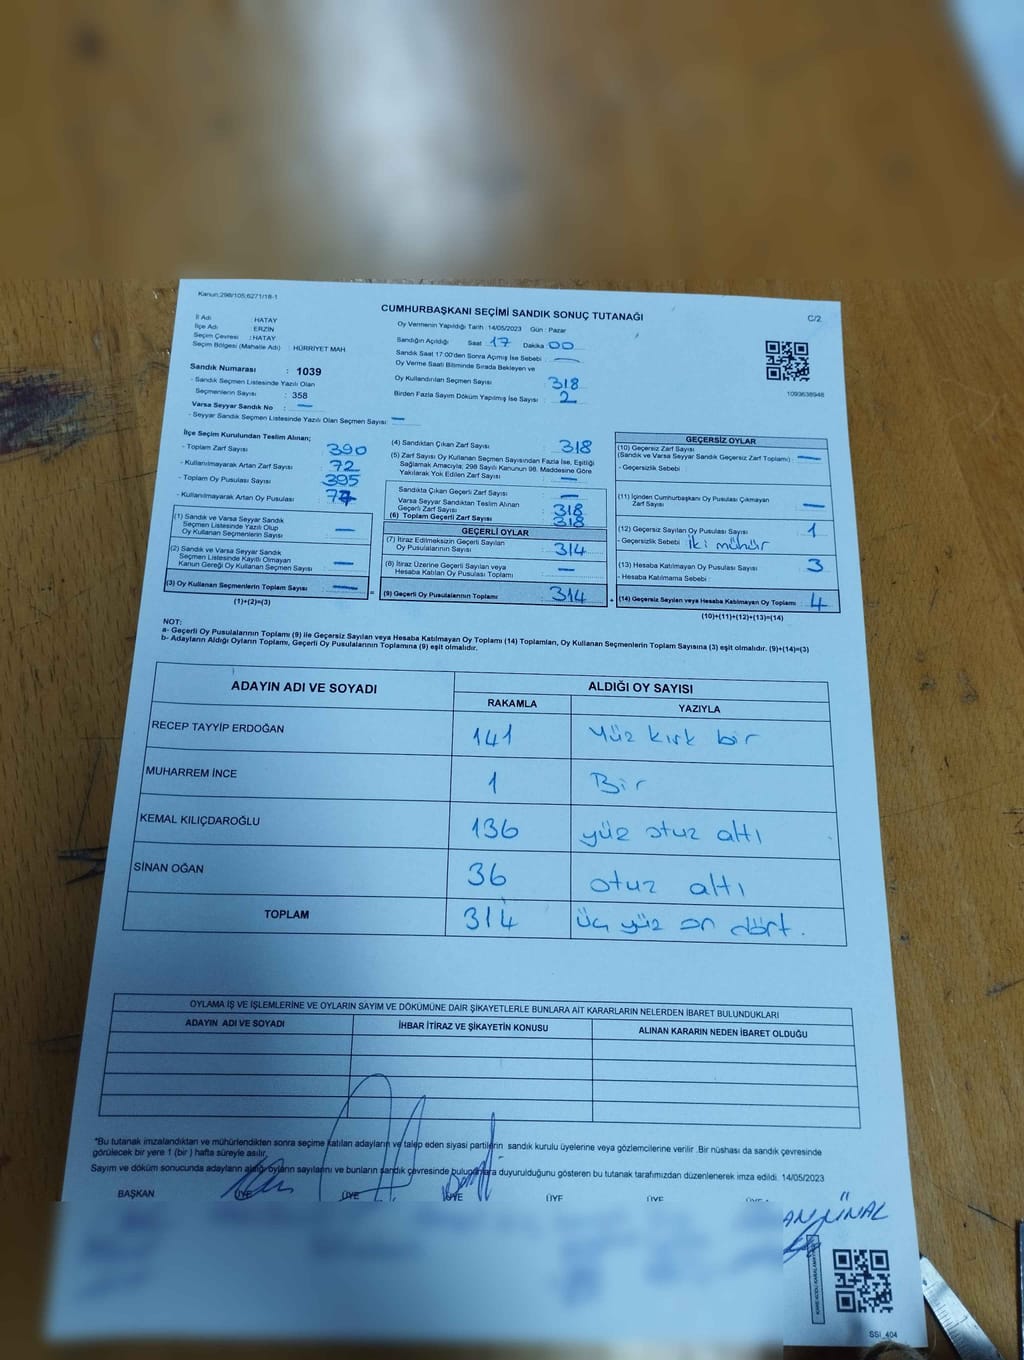 Kanun;298/105;6271/18-1
CUMHURBAŞKANI SEÇİMİ SANDIK SONUÇ TUTANAĞI
C/2
İl Adı HATAY
İlçe Adı ERZİN
Seçim Çevresi : HATAY
Seçim Bölgesi (Mahalle Adı) : HÜRRİYET MAH.
Sandık Numarası : 1039
- Sandık Seçmen Listesinde Yazılı Olan
Seçmenlerin Sayısı : 358
Varsa Seyyar Sandık No : —
- Seyyar Sandık Seçmen Listesinde Yazılı Olan Seçmen Sayısı : —
Oy Vermenin Yapıldığı Tarih : 14/05/2023 Gün : Pazar
Sandığın Açıldığı Saat 17 Dakika 00
Sandık Saat 17:00'den Sonra Açılmış İse Sebebi : —
Oy Verme Saati Bitiminde Sırada Bekleyen ve
Oy Kullandırılan Seçmen Sayısı 318
Birden Fazla Sayım Döküm Yapılmış İse Sayısı : 2
1093638948
İlçe Seçim Kurulundan Teslim Alınan;
- Toplam Zarf Sayısı 390
- Kullanılmayarak Artan Zarf Sayısı 72
- Toplam Oy Pusulası Sayısı 395
- Kullanılmayarak Artan Oy Pusulası 77
(1) Sandık ve Varsa Seyyar Sandık
Seçmen Listesinde Yazılı Olup
Oy Kullanan Seçmenlerin Sayısı —
(2) Sandık ve Varsa Seyyar Sandık
Seçmen Listesinde Kayıtlı Olmayan
Kanun Gereği Oy Kullanan Seçmen Sayısı —
(3) Oy Kullanan Seçmenlerin Toplam Sayısı —
(1)+(2)=(3)
(4) Sandıktan Çıkan Zarf Sayısı 318
(5) Zarf Sayısı Oy Kullanan Seçmen Sayısından Fazla İse, Eşitliği
Sağlamak Amacıyla; 298 Sayılı Kanunun 98. Maddesine Göre
Yakılarak Yok Edilen Zarf Sayısı —
Sandıkta Çıkan Geçerli Zarf Sayısı —
Varsa Seyyar Sandıktan Teslim Alınan
Geçerli Zarf Sayısı 318
(6) Toplam Geçerli Zarf Sayısı 318
GEÇERLİ OYLAR
(7) İtiraz Edilmeksizin Geçerli Sayılan
Oy Pusulalarının Sayısı 314
(8) İtiraz Üzerine Geçerli Sayılan veya
Hesaba Katılan Oy Pusulası Toplamı —
(9) Geçerli Oy Pusulalarının Toplamı 314
GEÇERSİZ OYLAR
(10) Geçersiz Zarf Sayısı
(Sandık ve Varsa Seyyar Sandık Geçersiz Zarf Toplamı) —
- Geçersizlik Sebebi
(11) İçinden Cumhurbaşkanı Oy Pusulası Çıkmayan
Zarf Sayısı —
(12) Geçersiz Sayılan Oy Pusulası Sayısı 1
- Geçersizlik Sebebi iki mühür
(13) Hesaba Katılmayan Oy Pusulası Sayısı 3
- Hesaba Katılmama Sebebi :
(14) Geçersiz Sayılan veya Hesaba Katılmayan Oy Toplamı 4
(10)+(11)+(12)+(13)=(14)
NOT:
a- Geçerli Oy Pusulalarının Toplamı (9) ile Geçersiz Sayılan veya Hesaba Katılmayan Oy Toplamı (14) Toplamları, Oy Kullanan Seçmenlerin Toplam Sayısına (3) eşit olmalıdır. (9)+(14)=(3)
b- Adayların Aldığı Oyların Toplamı, Geçerli Oy Pusulalarının Toplamına (9) eşit olmalıdır.
ADAYIN ADI VE SOYADI
ALDIĞI OY SAYISI
RAKAMLA YAZIYLA
RECEP TAYYİP ERDOĞAN 141 Yüz kırk bir
MUHARREM İNCE 1 Bir
KEMAL KILIÇDAROĞLU 136 yüz otuz altı
SİNAN OĞAN 36 otuz altı
TOPLAM 314 üç yüz on dört.
OYLAMA İŞ VE İŞLEMLERİNE VE OYLARIN SAYIM VE DÖKÜMÜNE DAİR ŞİKAYETLERLE BUNLARA AİT KARARLARIN NELERDEN İBARET BULUNDUKLARI
ADAYIN ADI VE SOYADI İHBAR İTİRAZ VE ŞİKAYETİN KONUSU ALINAN KARARIN NEDEN İBARET OLDUĞU
*Bu tutanak imzalandıktan ve mühürlendikten sonra seçime katılan adayların ve talep eden siyasi partilerin sandık kurulu üyelerine veya gözlemcilerine verilir. Bir nüshası da sandık çevresinde
görülecek bir yere 1 (bir ) hafta süreyle asılır.
Sayım ve döküm sonucunda adayların aldığı oyların sayılarını ve bunların sandık çevresinde bulunanlara duyurulduğunu gösteren bu tutanak tarafımızdan düzenlenerek imza edildi. 14/05/2023
BAŞKAN ÜYE ÜYE ÜYE ÜYE ÜYE ÜYE
ÜNAL
SSI_404